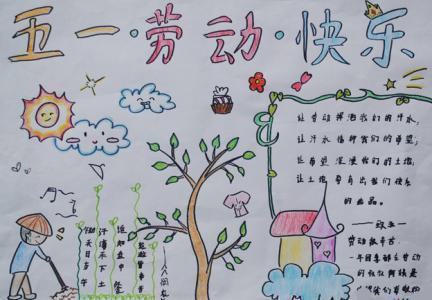 五一·劳动·快乐
让劳动挥洒我们的汗水，
让汗水播种我们的希望，
让希望深埋我们的土壤，
让土壤孕育出我们快乐
的
锄禾日当午
汗滴禾下土
谁知盘中餐
粒粒皆辛苦
劳动最辛苦
一年四季都在劳动